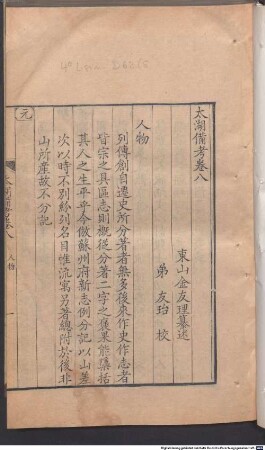 太湖備考卷八
東山金友理纂述
弟 友珆 校
人物
列傳創自遷史所分著者無多後來作史作志者
皆宗之具區志則概從分著二字之獲果能隱括
其人之生平乎今倣蘇州府新志例分記以山著
次以時不別紛列名目惟流寓另著總附於後非
山所產故不分記
元
人物